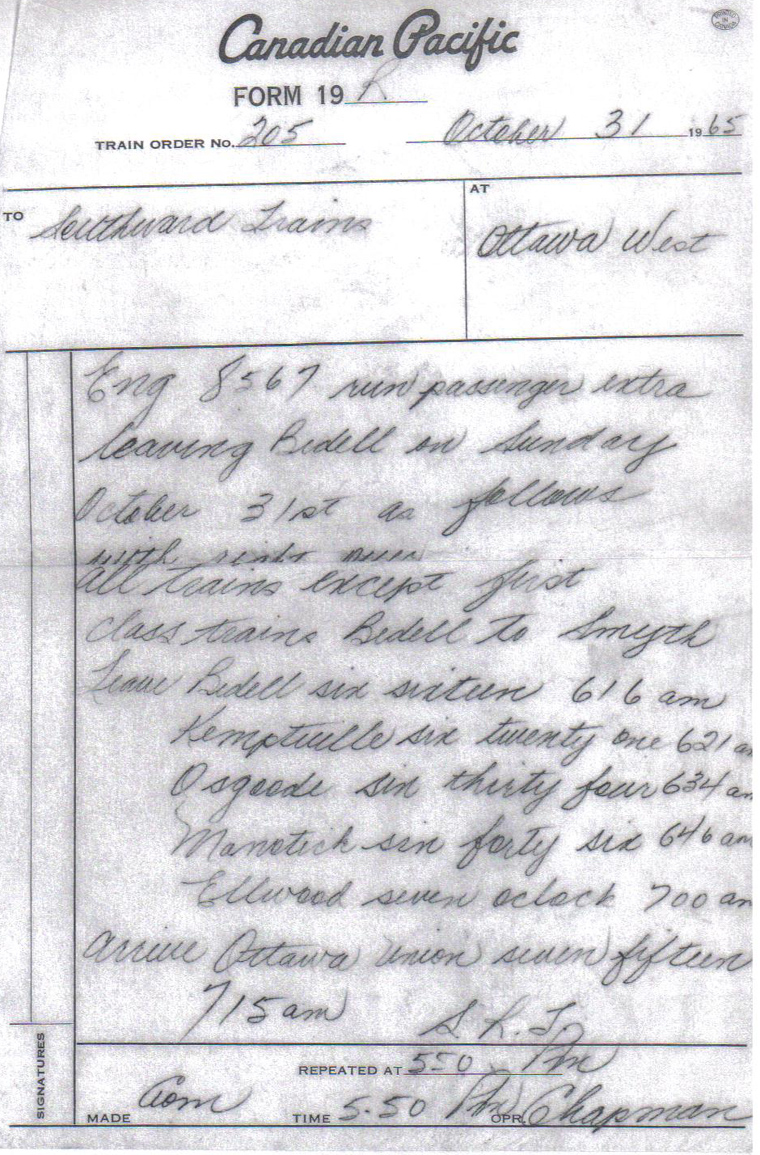 Canadian Pacific
FORM 19 R
TRAIN ORDER No. 205 October 31 1965
TO Southward Trains
AT Ottawa West
Eng 8567 run passenger extra
leaving Bedell on Sunday
October 31st as follows
with right over
all trains except first
class trains Bedell to Smyth
Leave Bedell six sixteen 616 am
Kemptville six twenty one 621 a
Osgoode six thirty four 634 am
Manotick six forty six 646 am
Ellwood seven oclock 700 am
arrive Ottawa Union seven fifteen
715 am
SIGNATURES
REPEATED AT 550 Pm
MADE Com TIME 5.50 Pm OPR. Chapman